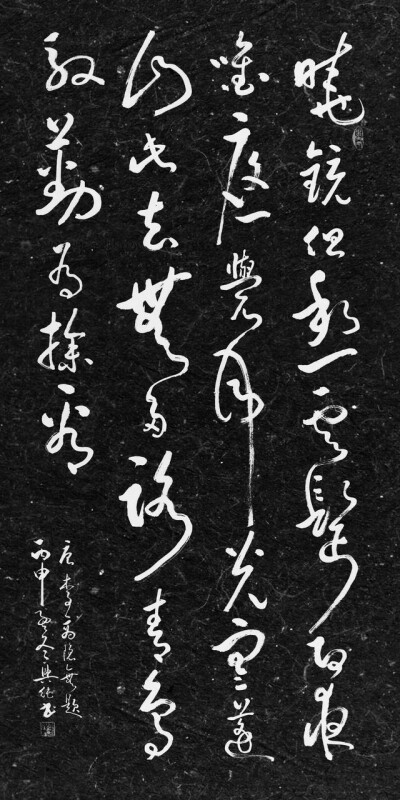 曉鏡但愁雲鬢改夜
唫應覺月光寒蓬
山此去無多路青鳥
殷勤為探看
唐李商隱無題
丙申冬興書